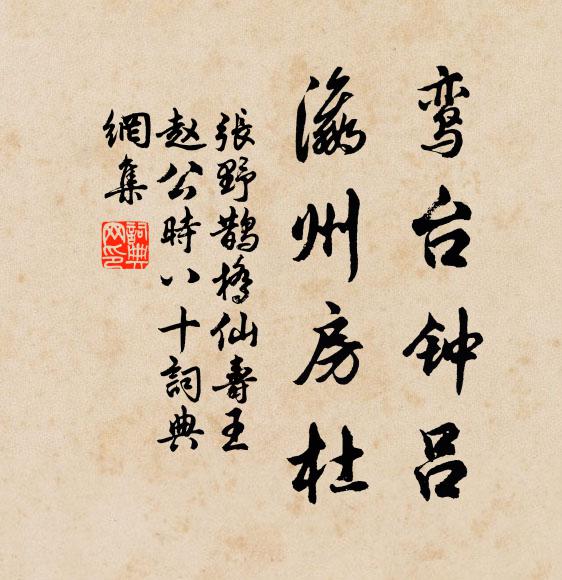 鸾台钟吕
瀛州房杜
張野鵲橋仙壽王
赵公時八十詞典
網集
詞典
网印